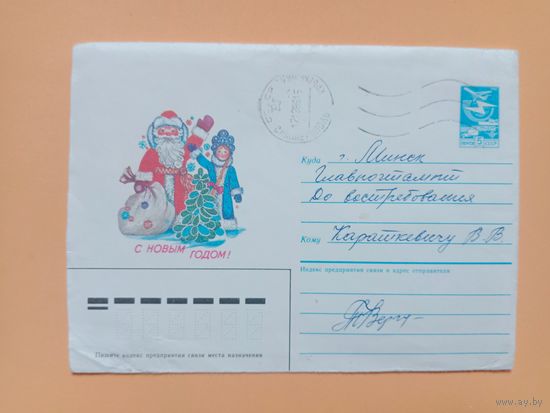 С НОВЫМ ГОДОМ!
ПОЧТА 5 к СССР
Куда г. Минск
Главпочтамт
До востребования
Кому Караткевичу В. В.
Индекс предприятия связи и адрес отправителя
Пишите индекс предприятия связи места назначения
www.ay.by